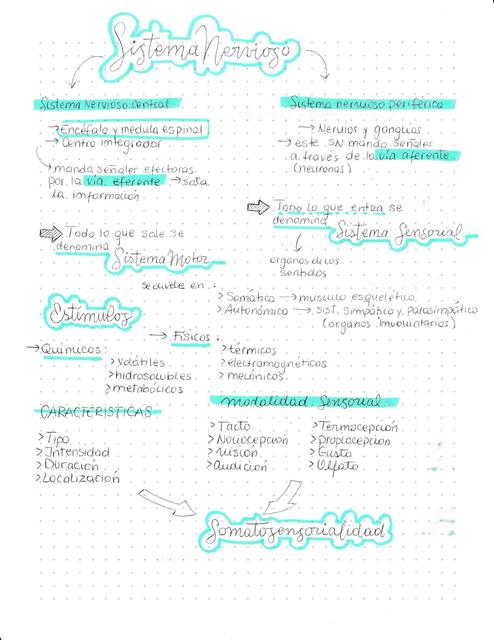 Sistema Nervioso
Sistema Nervioso Central
→ Encéfalo y médula espinal
→ Centro integrador
→ manda señales efectoras
por la vía eferente → sale
la imformación
Todo lo que sale se
denomina Sistema Motor
Sistema nervioso periférico
→ Nervios y ganglios
→ este SN manda señales
a través de la vía aferente.
(neuronas)
Todo lo que entra se
denomina Sistema Sensorial
organos de los
sentidos
se divide en :
> Somático → musculo esquelético.
> Autonómico → sist. Simpático y parasimpático
(organos involuntarios)
Estímulos
→ Químicos:
> Volátiles
> hidrosolubles
> metabólicos
→ Físicos :
> térmicos
> electromagnéticos
> mecánicos.
CARACTERISTICAS
> Tipo
> Intensidad
> Duración
> Localización
Modalidad Sensorial
> Tacto
> Nociocepción
> Visión
> Audición
> Termocepción
> Propiacepción
> Gusto
> Olfato
Somatosensorialidad